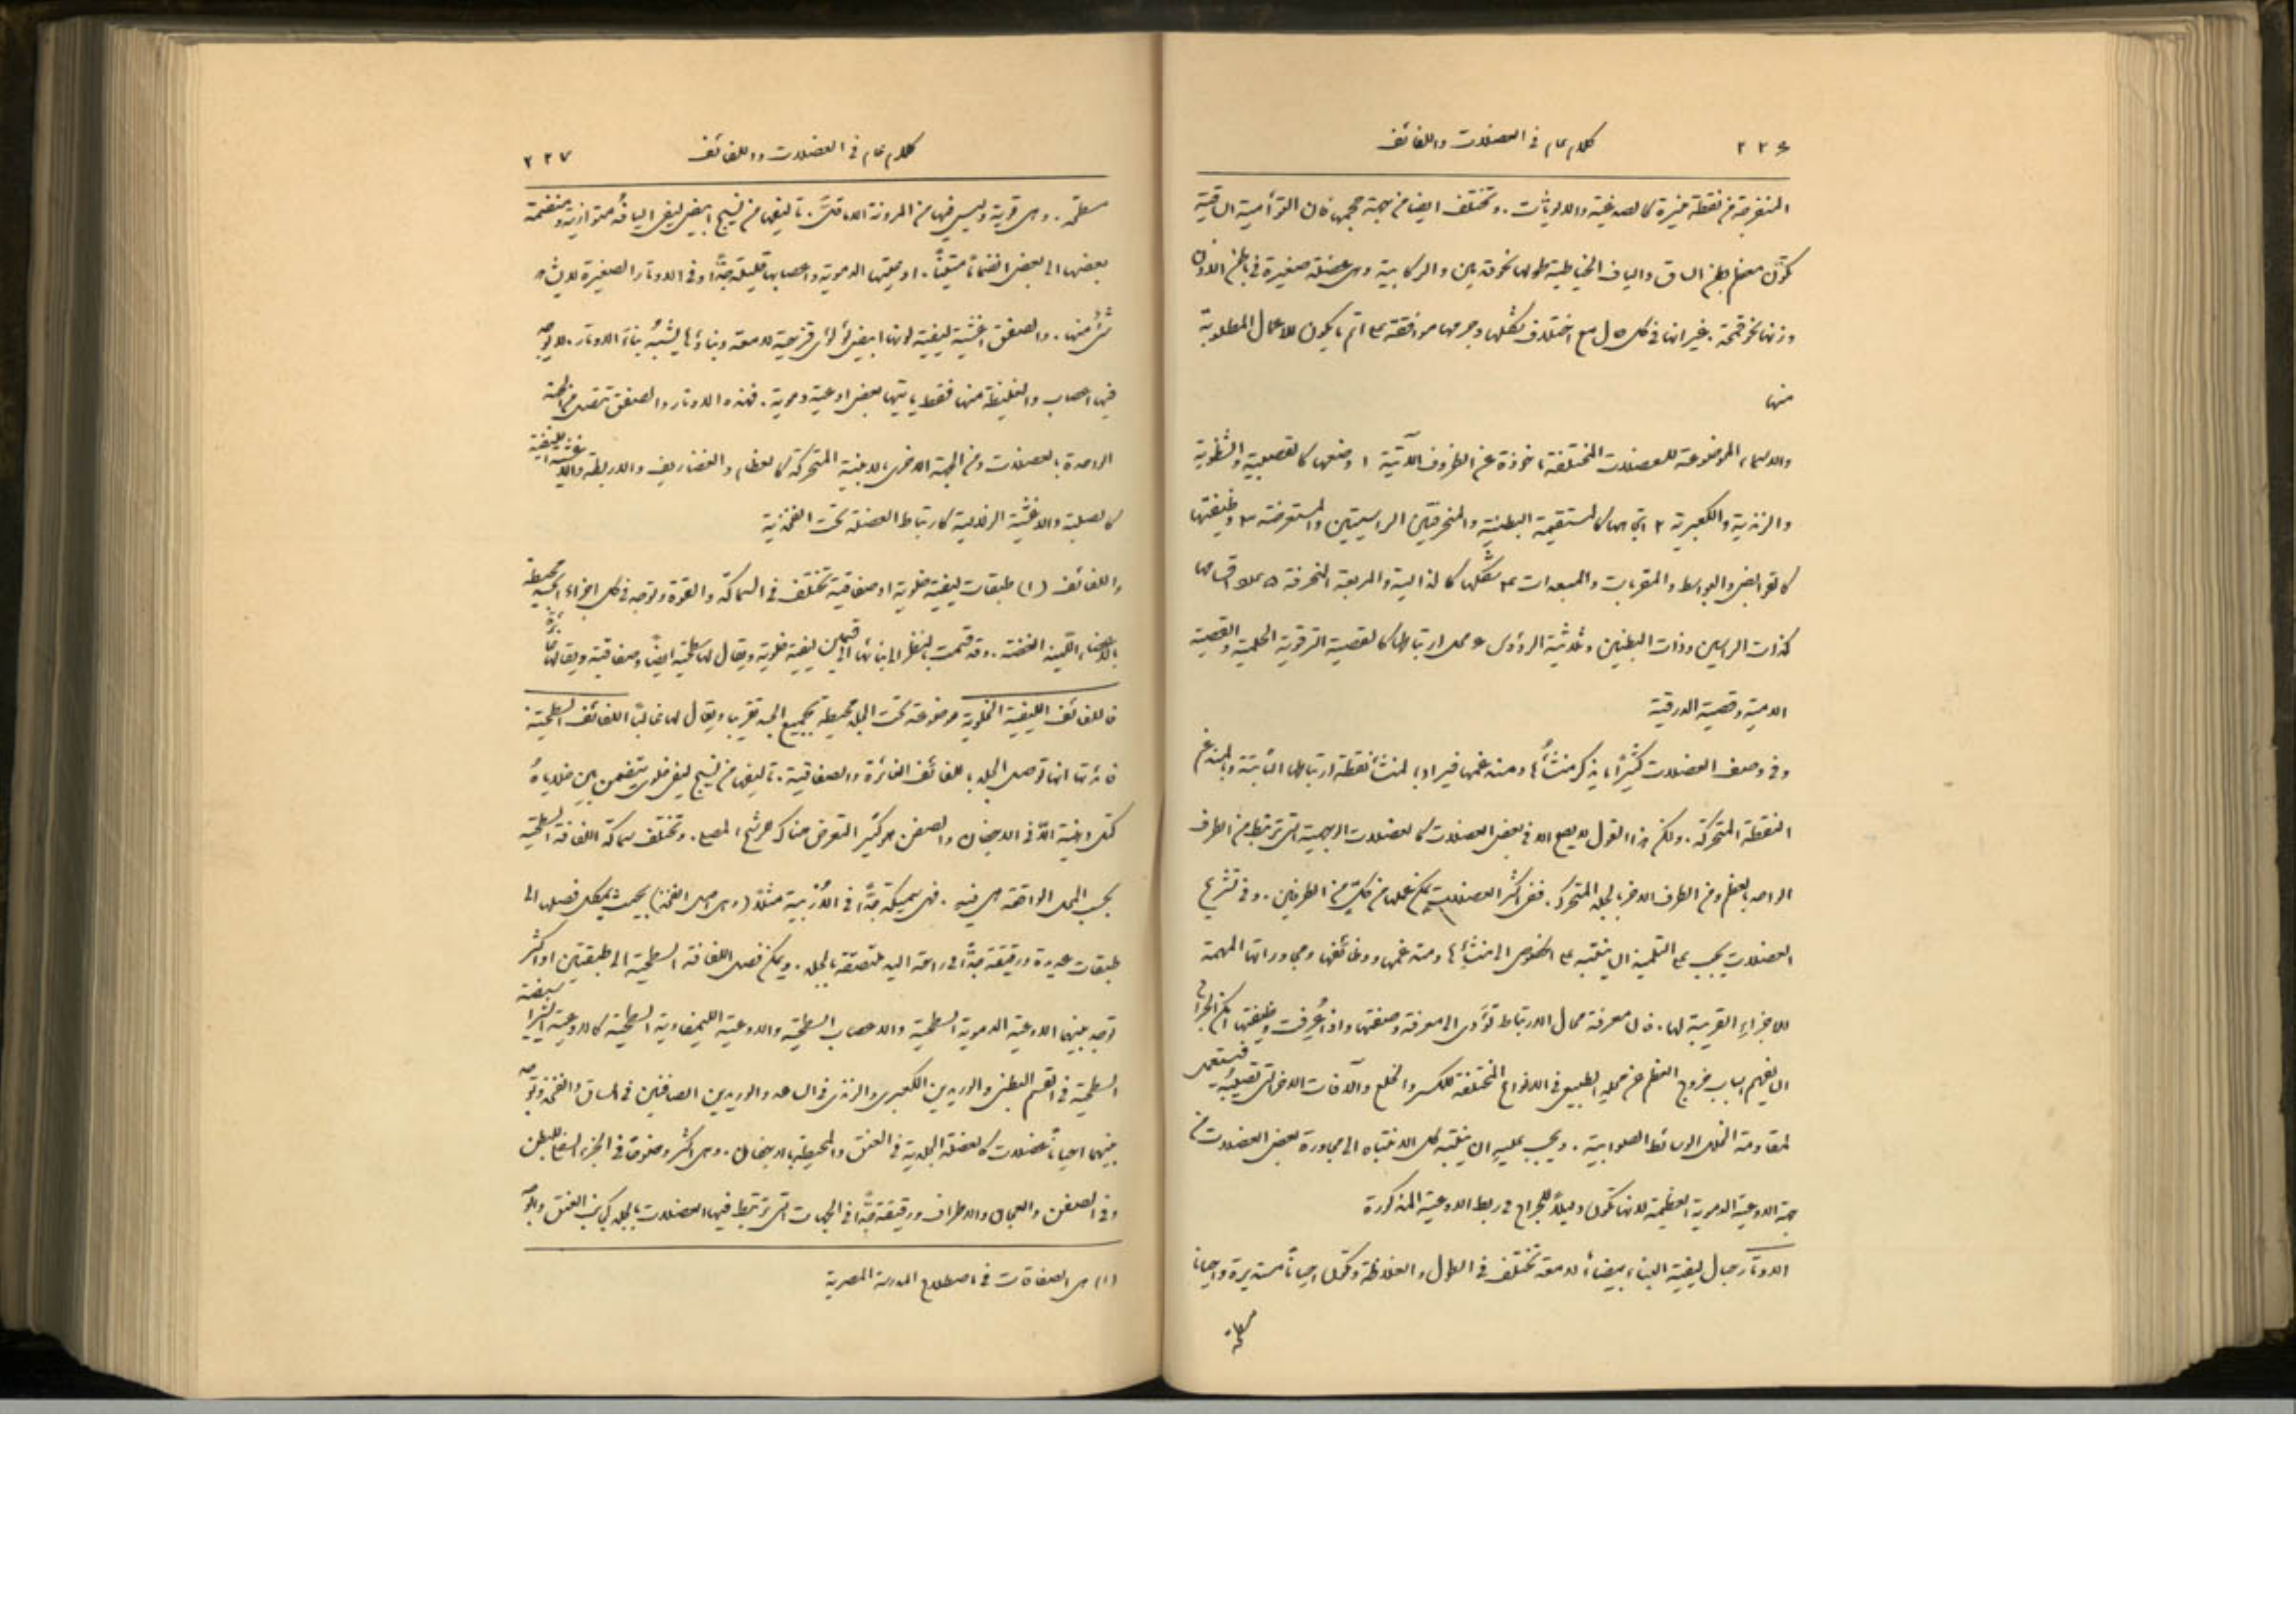 ٢٢٦ كلام عام في العضلات واللفائف
المنفرجة من نقطة صغيرة كالصدغية والالويات. وتختلف ايضا من جهة حجمها فان التوأمية الساقية
تكوّن معظم بطن الساق والياف الخياطية طولها نحو قدمين والركابية وهي عضلة صغيرة في باطن الاذن
وزنها نحو قمحة. غير انها في كل حال مع اختلاف شكلها وجرمها موافقة على اتم ما يكون للاعمال المطلوبة
منها
والاسماء الموضوعة للعضلات المختلفة مأخوذة عن الظروف الآتية ١ وضعها كالقصبية والشظوية
والزندية والكعبرية ٢ اتجاهها كالمستقيمة البطنية والمنحرفتين الراسيتين والمستعرضة ٣ وظيفتها
كالقوابض والبواسط والمقربات والمبعدات ٤ شكلها كالدالية والمربعة المنحرفة ٥ عدد اقسامها
كذات الراسين وذات البطنين وثلاثية الرؤوس ٦ محل ارتباطها كالقصية الترقوية الحلمية والقصية
اللامية وقصية الدرقية
وفي وصف العضلات كثيرًا ما يذكر منشأُها ومندغمها فيراد بالمنشأ نقطة ارتباطها الثابتة وبالمندغم
النقطة المتحركة. ولكن هذا القول لا يصح الا في بعض العضلات كالعضلات الوجهية التي ترتبط من الطرف
الواحد بالعظم ومن الطرف الاخر بالجلد المتحرك. ففي اكثر العضلات يمكن عملها من كلٍّ من الطرفين. وفي تشريح
العضلات يجب على التلميذ ان ينتبه على الخصوص الى منشإِها ومندغمها ووظائفها ومجاوراتها المهمة
للاجزاء القريبة لها. فان معرفة محال الارتباط تؤدي الى معرفة وضعها واذا عُرفت وظيفتها امكن الجراح
ان يفهم اسباب خروج العظم عن محله الطبيعي في الانواع المختلفة للكسر والخلع والآفات الاخر التي تصيبهُ فيستعمل
لمقاومة الخلل الوسائط الصوابية. ويجب عليه ان ينتبه كل الانتباه الى مجاورة بعض العضلات من
جهة الاوعية الدموية العظيمة لانها تكون دليلًا للجراح في ربط الاوعية المذكورة
الاوتار حبال ليفية البناء بيضاء لامعة تختلف في الطول والغلاظة وتكون احيانًا مستديرة واحيانا
مسطحة
كلام عام في العضلات واللفائف ٢٢٧
مسطحة. وهي قوية وليس فيها من المرونة الا ما قلَّ. تأليفها من نسيج ابيض ليفي اليافهُ متوازية ومنضمة
بعضها الى بعض انضمامًا متينًا. اوعيتها الدموية واعصابها قليلة جدًّا وفي الاوتار الصغيرة لا يشاهد
شيءٌ منها. والصفق اغشية ليفية لونها ابيض لؤلؤي قزحية لامعة وبناؤُها يشبهُ بناءَ الاوتار. لا يوجد
فيها اعصاب والغليظة منها فقط ياتيها بعض اوعية دموية. فهذه الاوتار والصفق تتصل من الجهة
الواحدة بالعضلات ومن الجهة الاخرى بالابنية المتحركة كالعظام والغضاريف والاربطة والاغشية الليفية
كالصلبة والاغشية الزلالية كارتباط العضلة تحت الفخذية
واللفائف (١) طبقات ليفية خلوية او صفاقية تختلف في السماكة والقوة وتوجد في كل اجزاء الجسد محيطة
بالاعضاء اللينة الغضة. وقد قسمت بالنظر الى بنائها الى قسمين ليفية خلوية ويقال لها سطحية ايضًا وصفاقية ويقال لها غائرة
فاللفائف الليفية الخلوية موضوعة تحت الجلد محيطة بجميع الجسد تقريبا ويقال لها غالبًا اللفائف السطحية.
فائدتها انها توصل الجلد باللفائف الغائرة والصفاقية. تأليفها من نسيج ليفي خلوي يتضمن بين خلاياهُ
كتل دهنية الّا في الاجفان والصفن هو كثير التعرض هناك لترشح المصل. وتختلف سماكة اللفافة السطحية
بحسب المحل الواقعة هي فيه. فهي سميكة جدًّا في الأُربية مثلًا (وهي اصل الفخذ) بحيث يمكن فصلها الى
طبقات عديدة ورقيقة جدًّا في راحة اليد ملتصقة بالجلد. ويمكن فصل اللفافة السطحية الى طبقتين او اكثر
توجد بينها الاوعية الدموية السطحية والاعصاب السطحية والاوعية الليمفاوية السطحية كالاوعية الشراسيفية
السطحية في القسم البطني والوريدين الكعبري والزندي في الساعد والوريدين الصافنين في الساق والفخذ وتوجد
بينهما احيانًا عضلات كالعضلة الجلدية في العنق والمحيطية بالاجفان. وهي اكثر وضوحًا في الجزء السفلي للبطن
وفي الصفن والعجان والاطراف ورقيقة جدًّا في الجهات التي ترتبط فيها العضلات بالجلد كجانب العنق والوجه
(١) هي الصفاقات في اصطلاح المدرسة المصرية